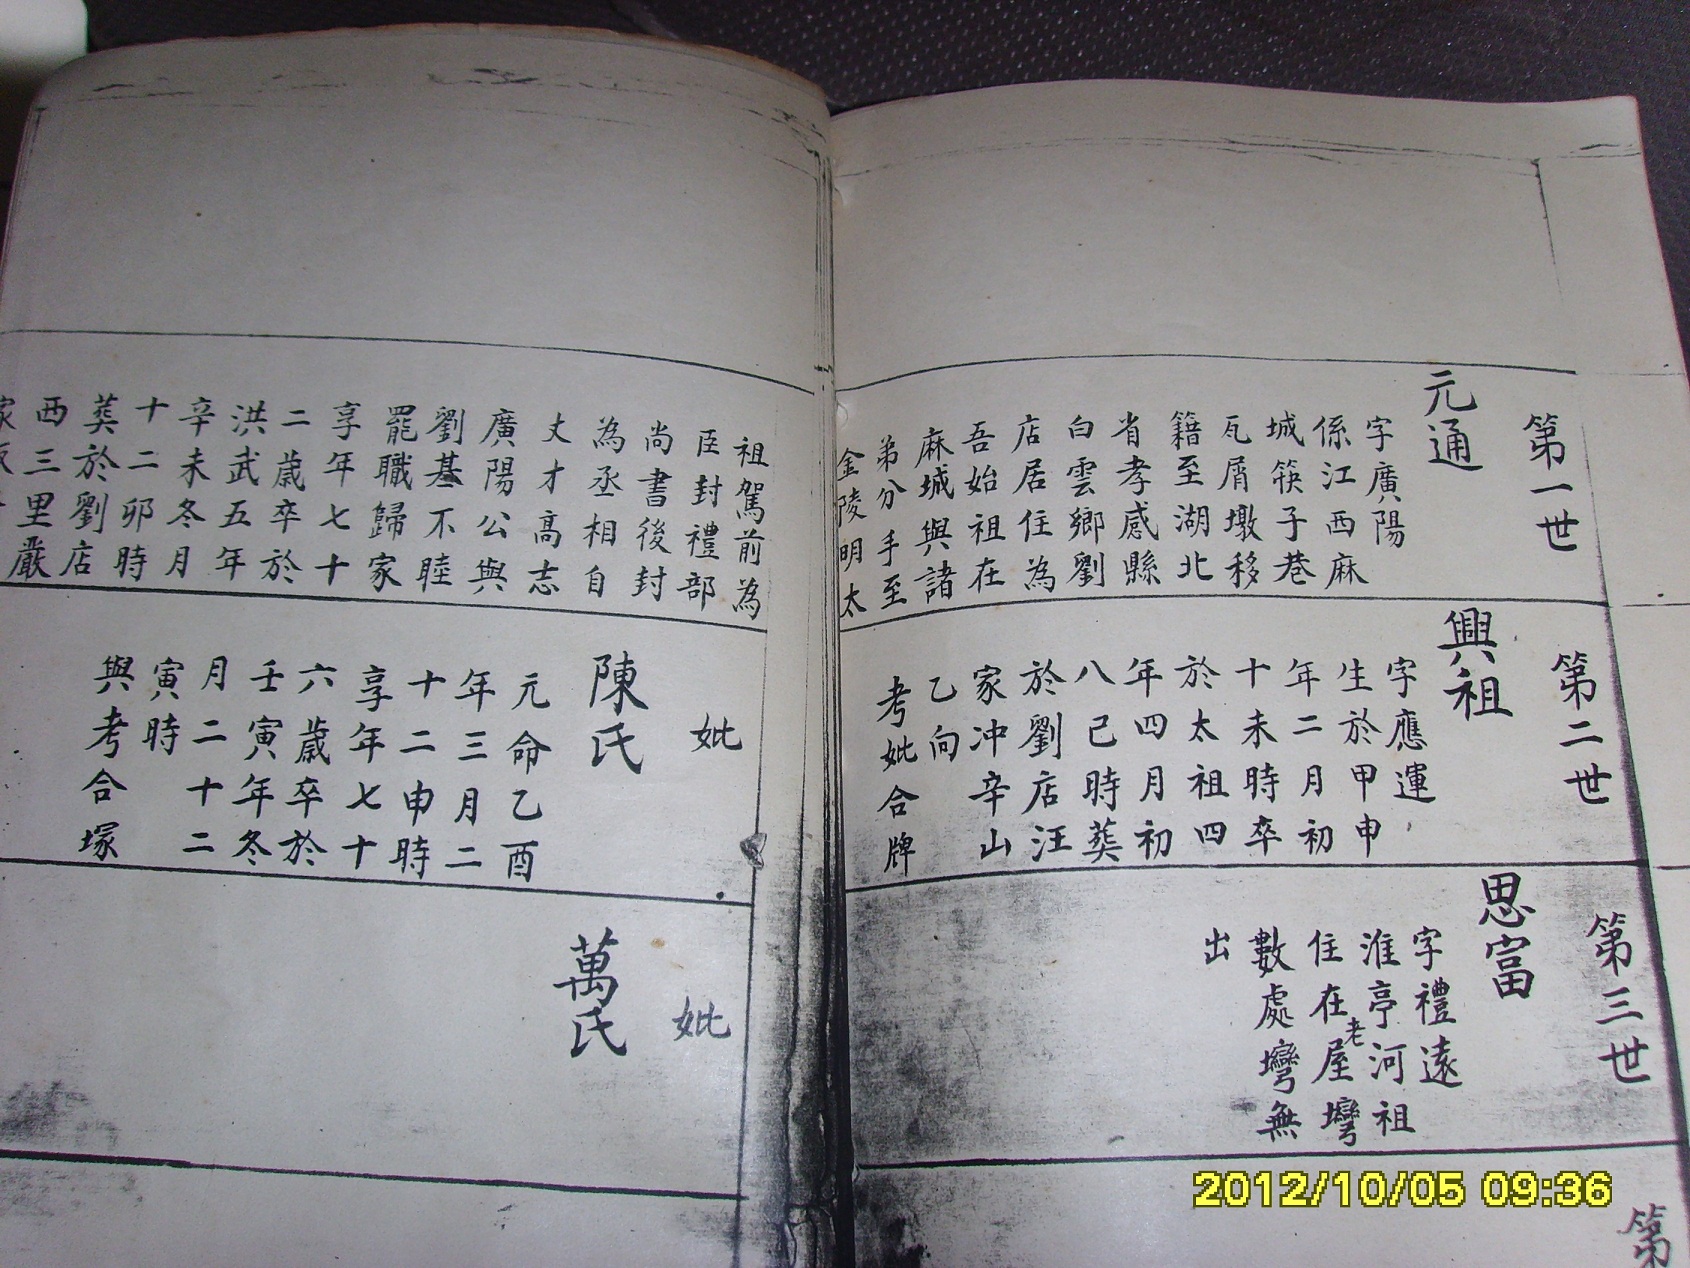 第一世
元通
字廣陽
係江西麻
城筷子巷
瓦屑墩移
籍至湖北
省孝感縣
白雲鄉劉
店居住為
吾始祖在
麻城與諸
弟分手至
金陵明太
祖駕前為
臣封禮部
尚書後封
為丞相自
丈才高志
廣陽公與
劉基不睦
罷職歸家
享年七十
二歲卒於
洪武五年
辛未冬月
十二卯時
葬於劉店
西三里嚴
家
第二世
興祖
字應運
生於甲申
年二月初
十未時卒
於太祖四
年四月初
八巳時葬
於劉店汪
家冲辛山
乙向
考妣合牌
妣
陳氏
元命乙酉
年三月二
十二申時
享年七十
六歲卒於
壬寅年冬
月二十二
寅時
與考合塚
第三世
思富
字禮遠
淮亭河祖
住在老屋壪
數處壪無
出
妣
萬氏
第
2012/10/05 09:36